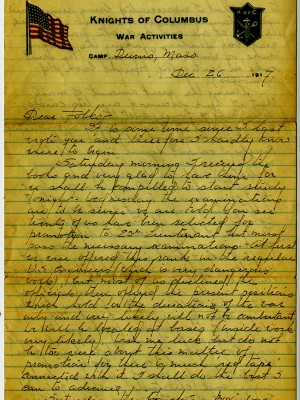 KNIGHTS OF COLUMBUS
WAR ACTIVITIES
CAMP Devens, Mass.
Dec 26 1917
Dear Folks:
It is some time since I last
wrote you and therefore I hardly know
where to begin.
Saturday morning I received the
books and very glad to have them for
we shall be compelled to start study
tonight. Wednesday the examinations
are to be
of us have been selected for
promotion to 2nd Lieutenant but must
pass the necessary examinations. At first
we were offered this rank in the regular
U.S. (which is very dangerous
work) but most of us declined. The
officers then offered the present positions
which hold for the duration of the war
only and very likely will not be combatant
but will be located at bases (inside work
very likely). Wish me luck but do not
be too sure about this matter of
promotion for there is much red tape
connected with it. I shall do the best I
can to advance.